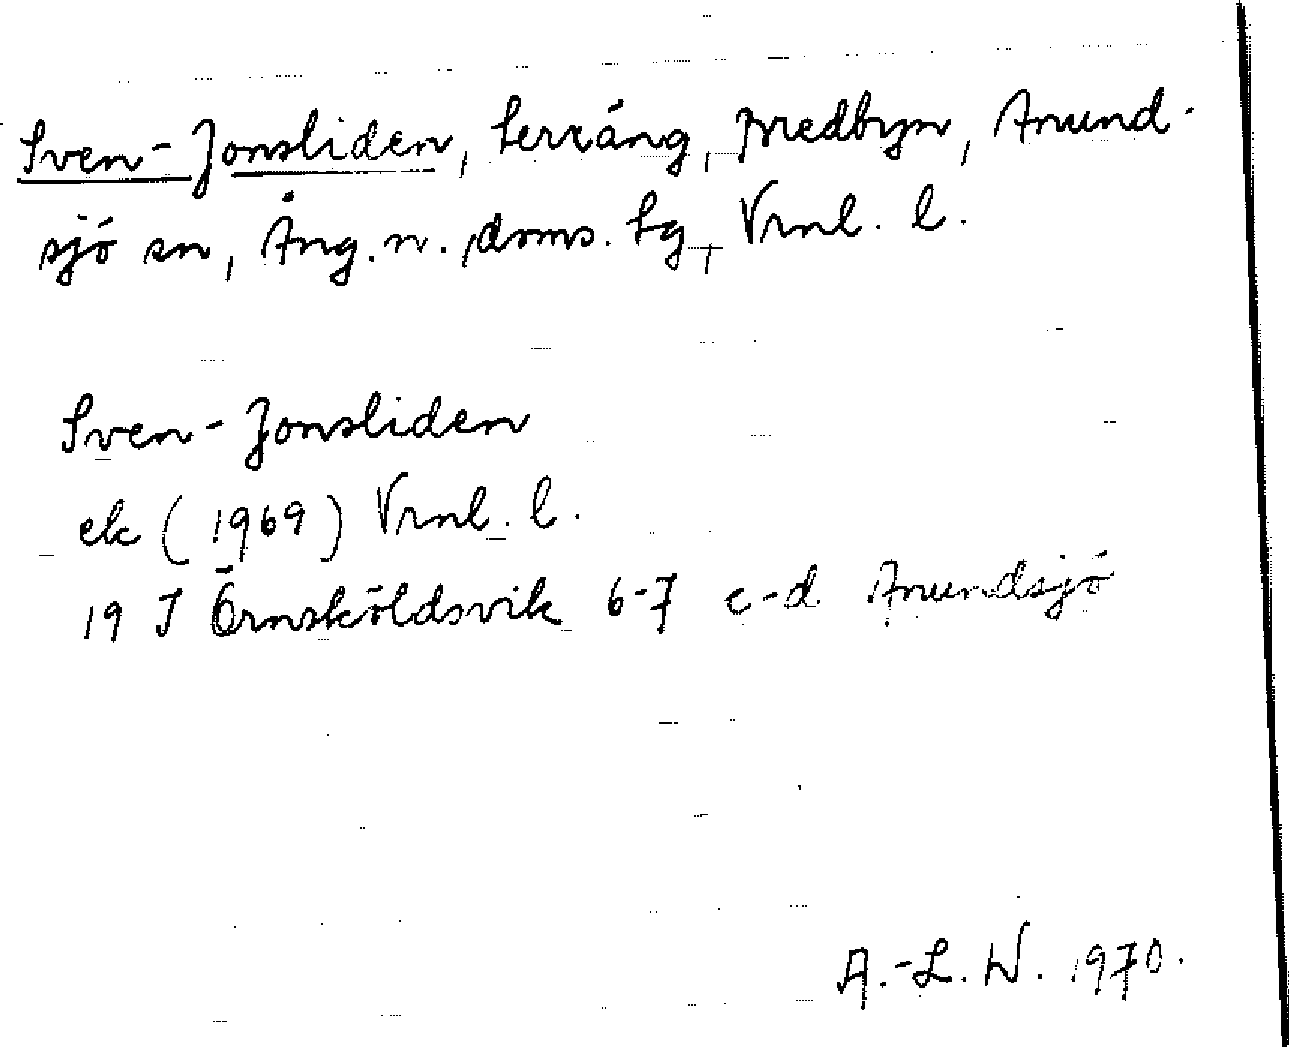 Sven-Jonsliden, terräng, Bredbyn, Anund-
sjö sn, Ång. n. doms. tg, Vrnl. l.
Sven-Jonsliden
ek (1969) Vrnl. l.
19 J Örnsköldsvik 6-7 c-d Anundsjö
A.-L. W. 1970.